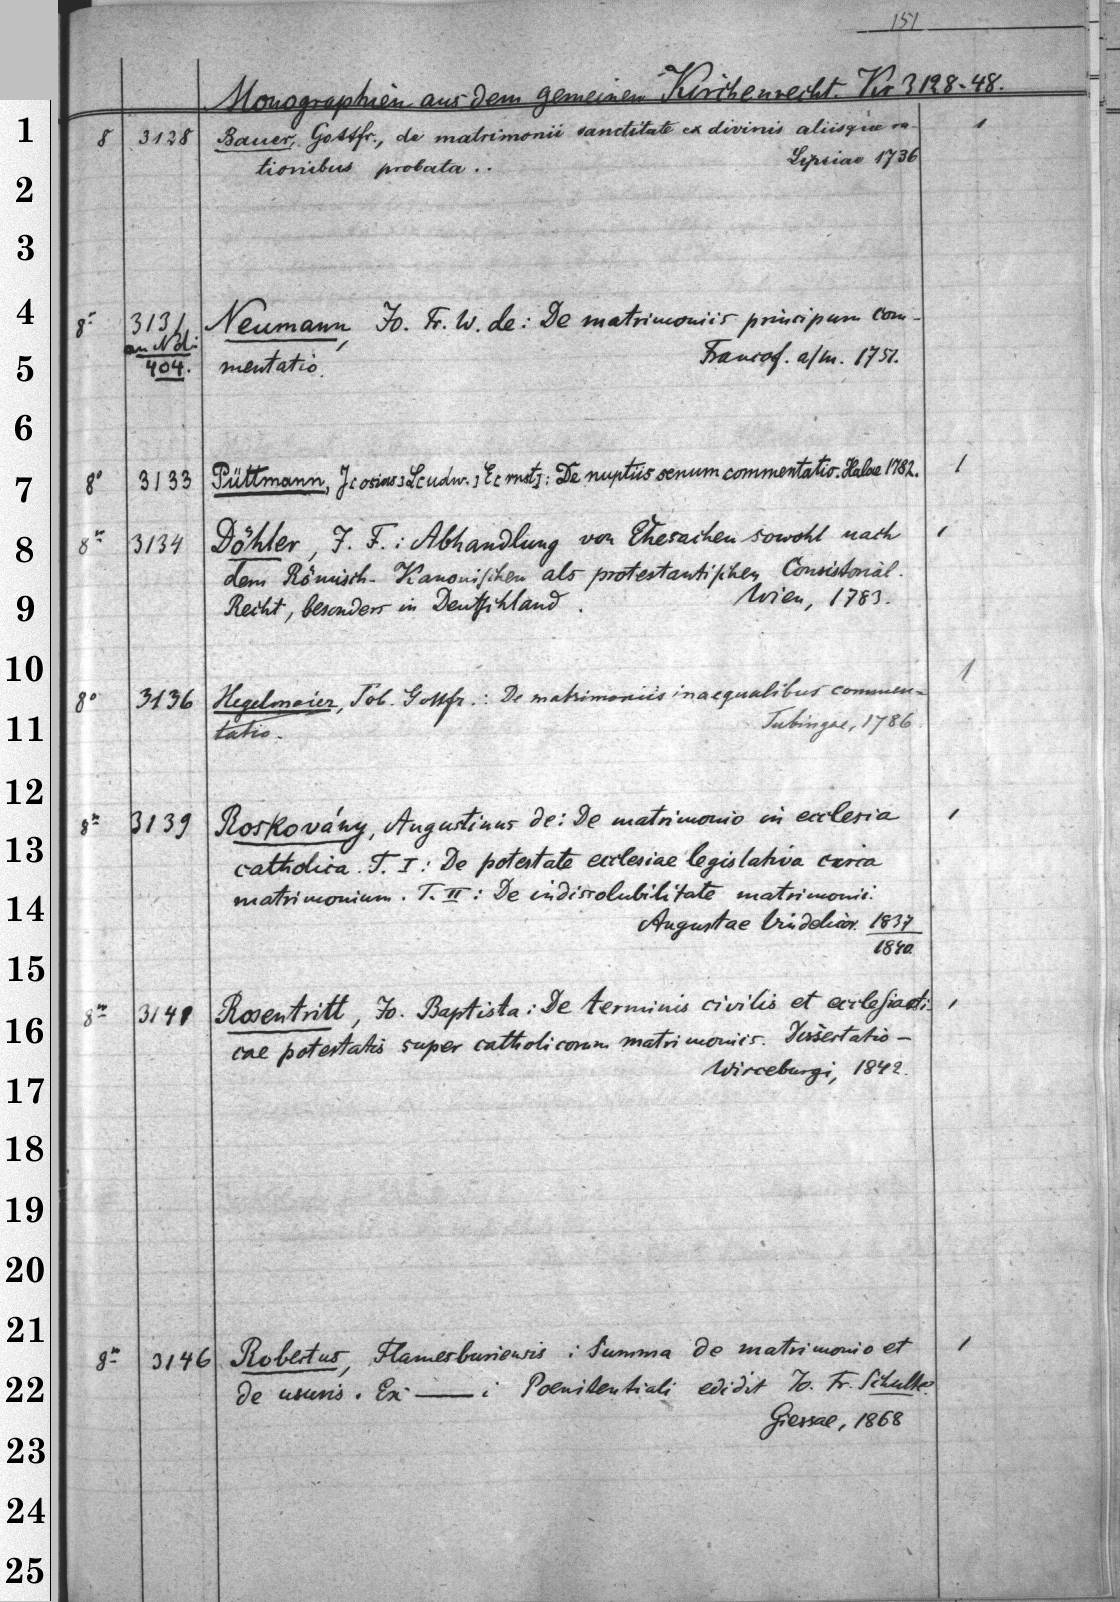 151
Monographien aus dem gemeinen Kirchenrecht. Kr 3128-48.
1
8 3128 Bauer, Gottfr., de matrimonii sanctitate ex divinis aliisque ra- 1
tionibus probata .. Lipsiae 1736
2
3
4
8° 3131 Neumann, Jo. Fr. W. de: De matrimoniis principum com-
an Nd:
404. mentatio. Francof. a/m. 1751.
5
6
7
8° 3133 Püttmann, J[osias] L[udw.] E[rnst]: De nuptiis senum commentatio. Halae 1782. 1
8
8° 3134 Döhler, J. F.: Abhandlung von Ehesachen sowohl nach 1
dem Römisch-Kanonischen als protestantischen Consistorial-
9
Recht, besonders in Deutschland. Wien, 1783.
10
8° 3136 Hegelmaier, Tob. Gottfr.: De matrimoniis inaequalibus commen- 1
11
tatio. Tubingae, 1786
12
8° 3139 Roskovány, Augustinus de: De matrimonio in ecclesia 1
13
catholica. T. I: De potestate ecclesiae legislativa circa
14
matrimonium. T. II: De indissolubilitate matrimonii.
Augustae Vindelicor. 1837
1840.
15
8° 3141 Rosentritt, Jo. Baptista: De terminis civilis et ecclesiasti- 1
16
cae potestatis super catholicorum matrimoniis. Dissertatio-
Wirceburgi, 1842.
17
18
19
20
21
8° 3146 Robertus, Flamesburiensis: Summa de matrimonio et 1
22
de usuris. Ex — i Poenitentiali edidit Jo. Fr. Schulte.
Giessae, 1868
23
24
25